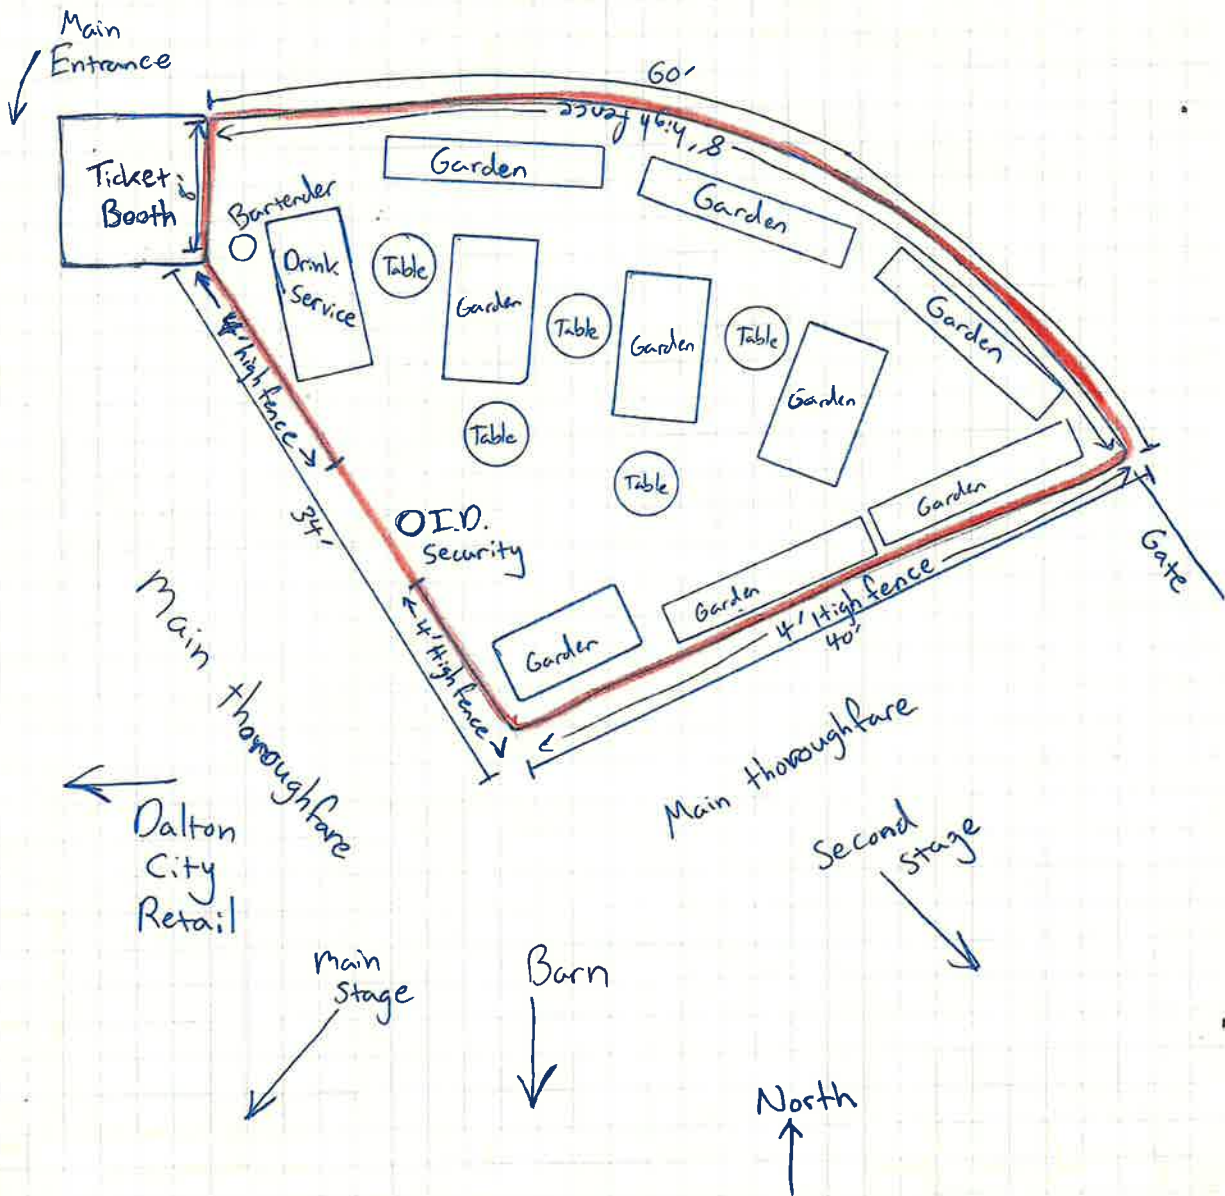 Main
Entrance
60'
8' high fence
Ticket
Booth
Bartender
Drink
Service
Garden
Garden
Garden
Table
Garden
Table
Garden
Table
Garden
Table
Table
4' high fence
34'
I.D.
Security
4' High fence
Garden
Garden
Garden
4' High fence
40'
Gate
Main thoroughfare
Main thoroughfare
Dalton
City
Retail
Second
Stage
Main
Stage
Barn
North